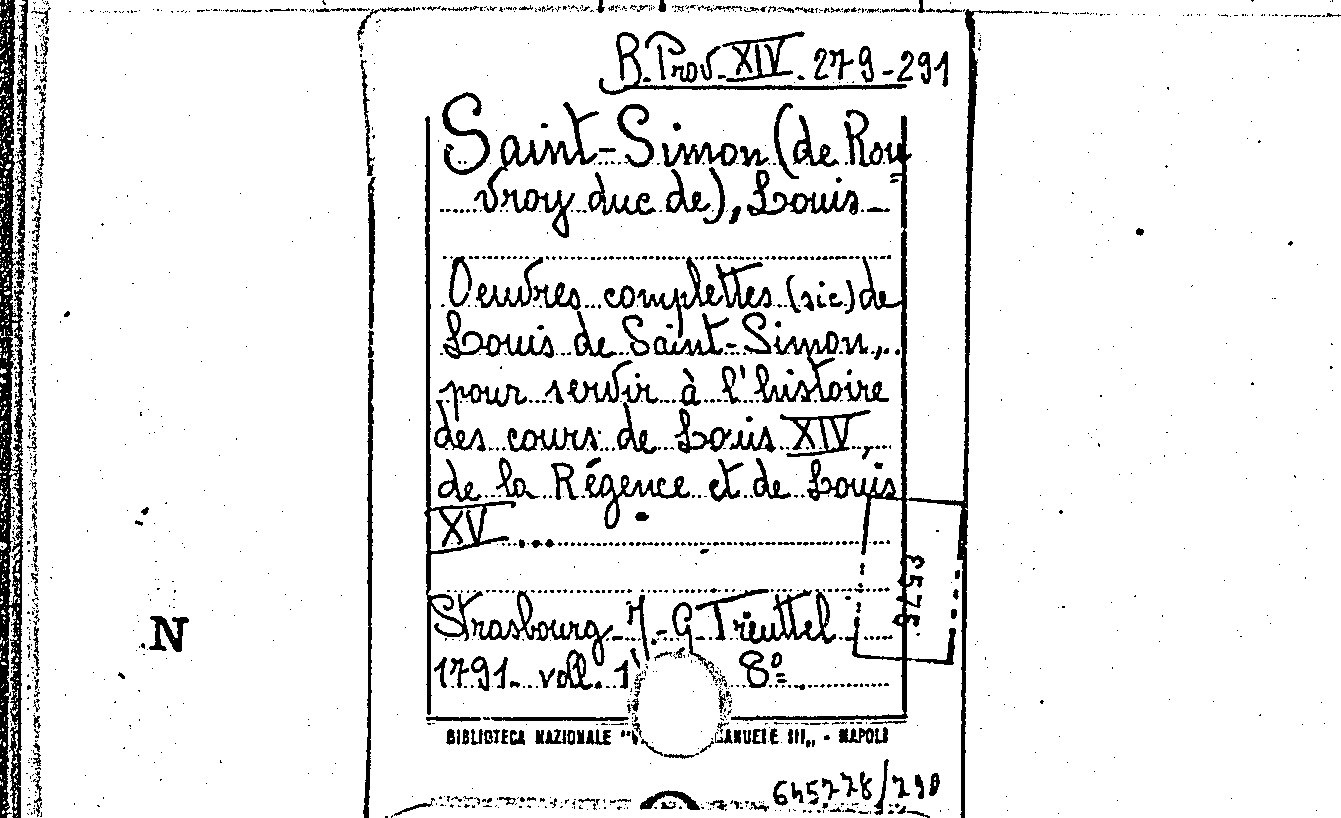 B. Prov. XIV. 279-291
Saint-Simon (de Rou
vroy duc de), Louis-
Oeuvres complettes (sic) de
Louis de Saint-Simon,
pour servir à l'histoire
des cours de Louis XIV,
de la Régence et de Louis
XV ...
Strasbourg - J.-G. Treuttel
1791. voll. 8º.
BIBLIOTECA NAZIONALE " ANUELE III,, - NAPOLI
N